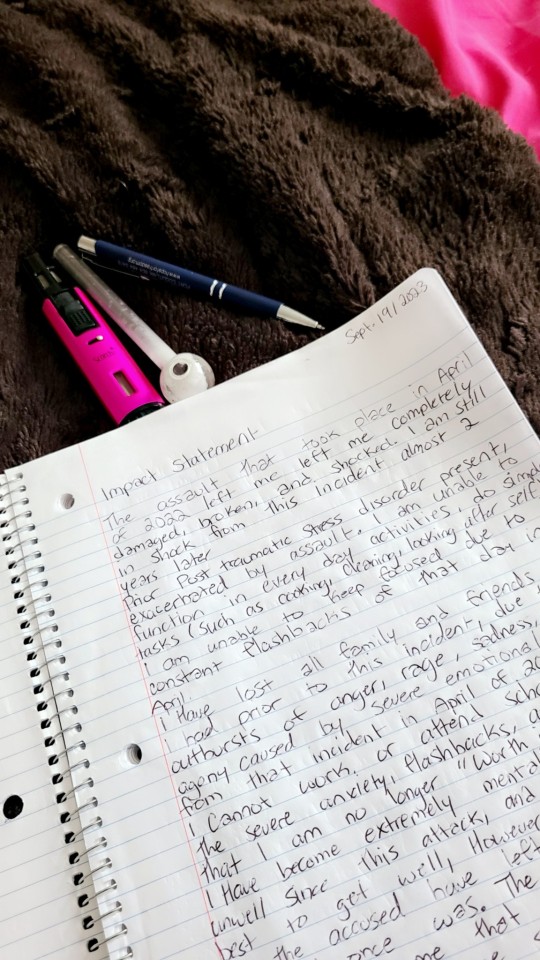 Sept. 19/2023
Impact Statement
The assault that took place in April
of 2022 left me completely
damaged, broken, and shocked. I am still
in shock from this incident almost 2
years later
Prior Post traumatic stress disorder present,
exacerbated by assault. I am unable to
function in every day activities, do simple
tasks (such as cooking, cleaning, looking after self
i am unable to keep focused due to
constant flashbacks of that day in
April.
i Have lost all family and friends
i had prior to this incident, due
outbursts of anger, rage, sadness,
agony caused by severe emotional
from that incident in April of 20
i Cannot work, or attend scho
the severe anxiety, flashbacks, a
that I am no longer "worth
i Have become extremely mental
unwell since this attack, and
best to get well, However
the accused have left
once was. The
me that